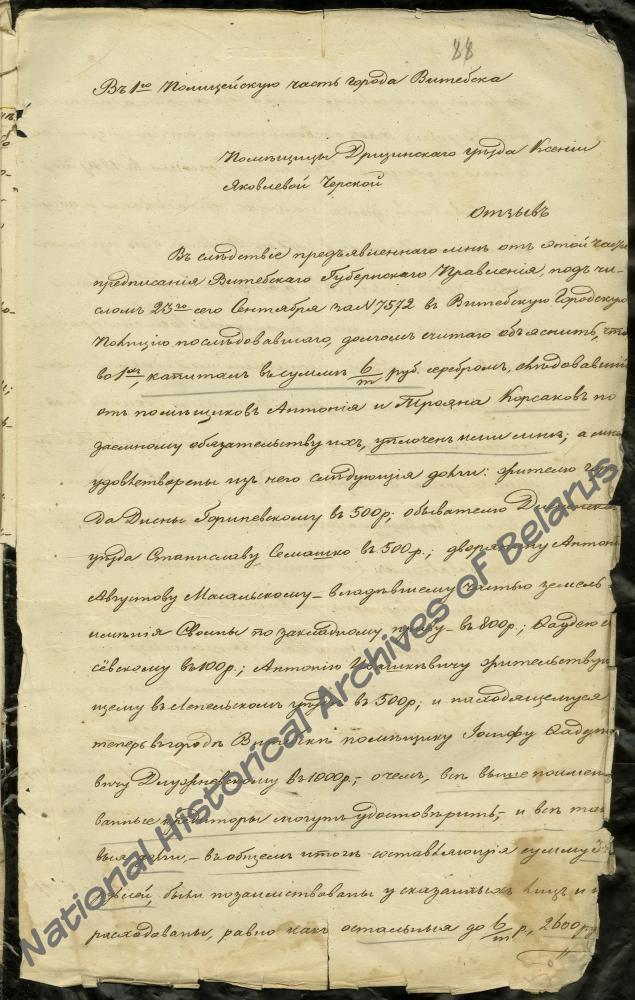 88
Въ 1ю Полицейскую часть города Витебска
Помѣщицы Дризинскаго уѣзда Ксеніи
Яковлевой Черской
Отзывъ
Въ слѣдствіе предъявленнаго мнѣ отъ этой части
предписанія Витебскаго Губернскаго Правленія, подъ чи-
сломъ 23го сего Сентября за N 7572 въ Витебскую Городскую
Полицію послѣдовавшаго, долгомъ считаю объяснить, что
во 1хъ, капиталъ въ суммѣ 6/m руб. серебромъ, слѣдовавшій
отъ помѣщиковъ Антонія и Трояна Корсаковъ по
заемному обязательству ихъ, уплоченъ ими мнѣ; а мною
удовлетворены изъ него слѣдующія долги: жителю горо-
да Дисны Гориневскому въ 500 р; обывателю
уѣзда Станиславу Семашко въ 500 р.; дворянину Антонію
Августову Масальскому – владѣвшему частью земель
имѣнія Своины по закладному праву – въ 800 р.; Фадѣю
сёвскому въ 100 р.; Антонію жительствую-
щему въ Лепельскомъ уѣздѣ въ 500 р; и находящемуся
теперь въ городѣ Витебскѣ помѣщику Іосифу Фадѣе-
вичу въ 1000 р; – о чемъ, всѣ выше поимено-
ванные кредиторы могутъ удостовѣрить, – и всѣ тако-
выя долги, – въ общемъ итогѣ составляющія сумму
рублей, были позаимствованы у сказанныхъ лицъ и
расходованы, равно какъ остальныя до 6/m р, 2600 р
National Historical Archives of Belarus